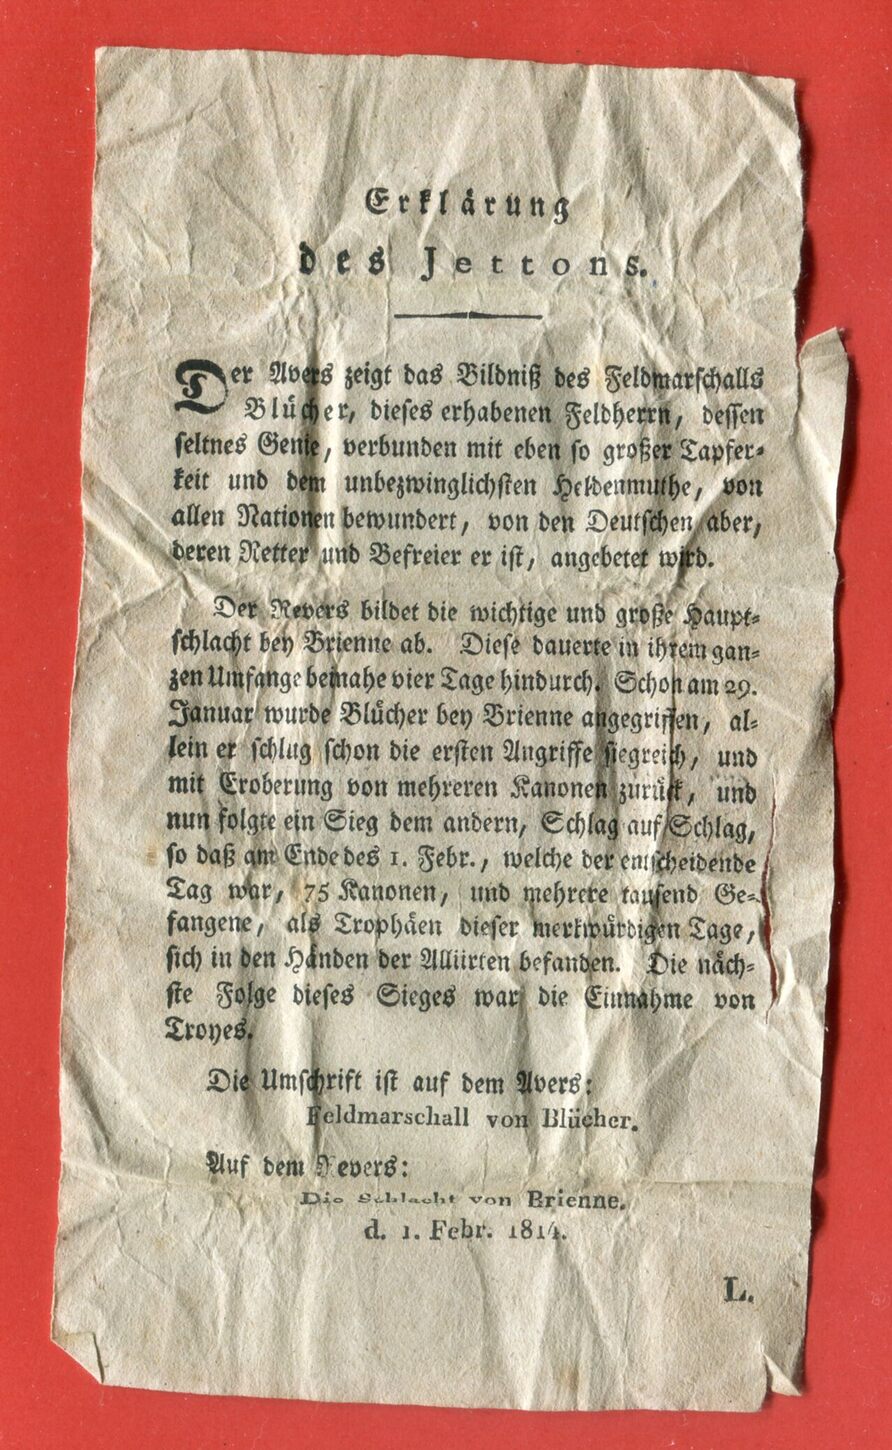 Erklärung
des Jettons.
Der Avers zeigt das Bildniß des Feldmarschalls
Blücher, dieses erhabenen Feldherrn, dessen
seltnes Genie, verbunden mit eben so großer Tapfer-
keit und dem unbezwinglichsten Heldenmuthe, von
allen Nationen bewundert, von den Deutschen aber,
deren Retter und Befreier er ist, angebetet wird.
Der Revers bildet die wichtige und große Haupt-
schlacht bey Brienne ab. Diese dauerte in ihrem gan-
zen Umfange beinahe vier Tage hindurch. Schon am 29.
Januar wurde Blücher bey Brienne angegriffen, al-
lein er schlug schon die ersten Angriffe siegreich, und
mit Eroberung von mehreren Kanonen zurück, und
nun folgte ein Sieg dem andern, Schlag auf Schlag,
so daß am Ende des 1. Febr., welche der entscheidende
Tag war, 75 Kanonen, und mehrere tausend Ge-
fangene, als Trophäen dieser merkwürdigen Tage,
sich in den Händen der Alliirten befanden. Die näch-
ste Folge dieses Sieges war die Einnahme von
Troyes.
Die Umschrift ist auf dem Avers:
Feldmarschall von Blücher.
Auf dem Revers:
Die Schlacht von Brienne.
d. 1. Febr. 1814.
L.